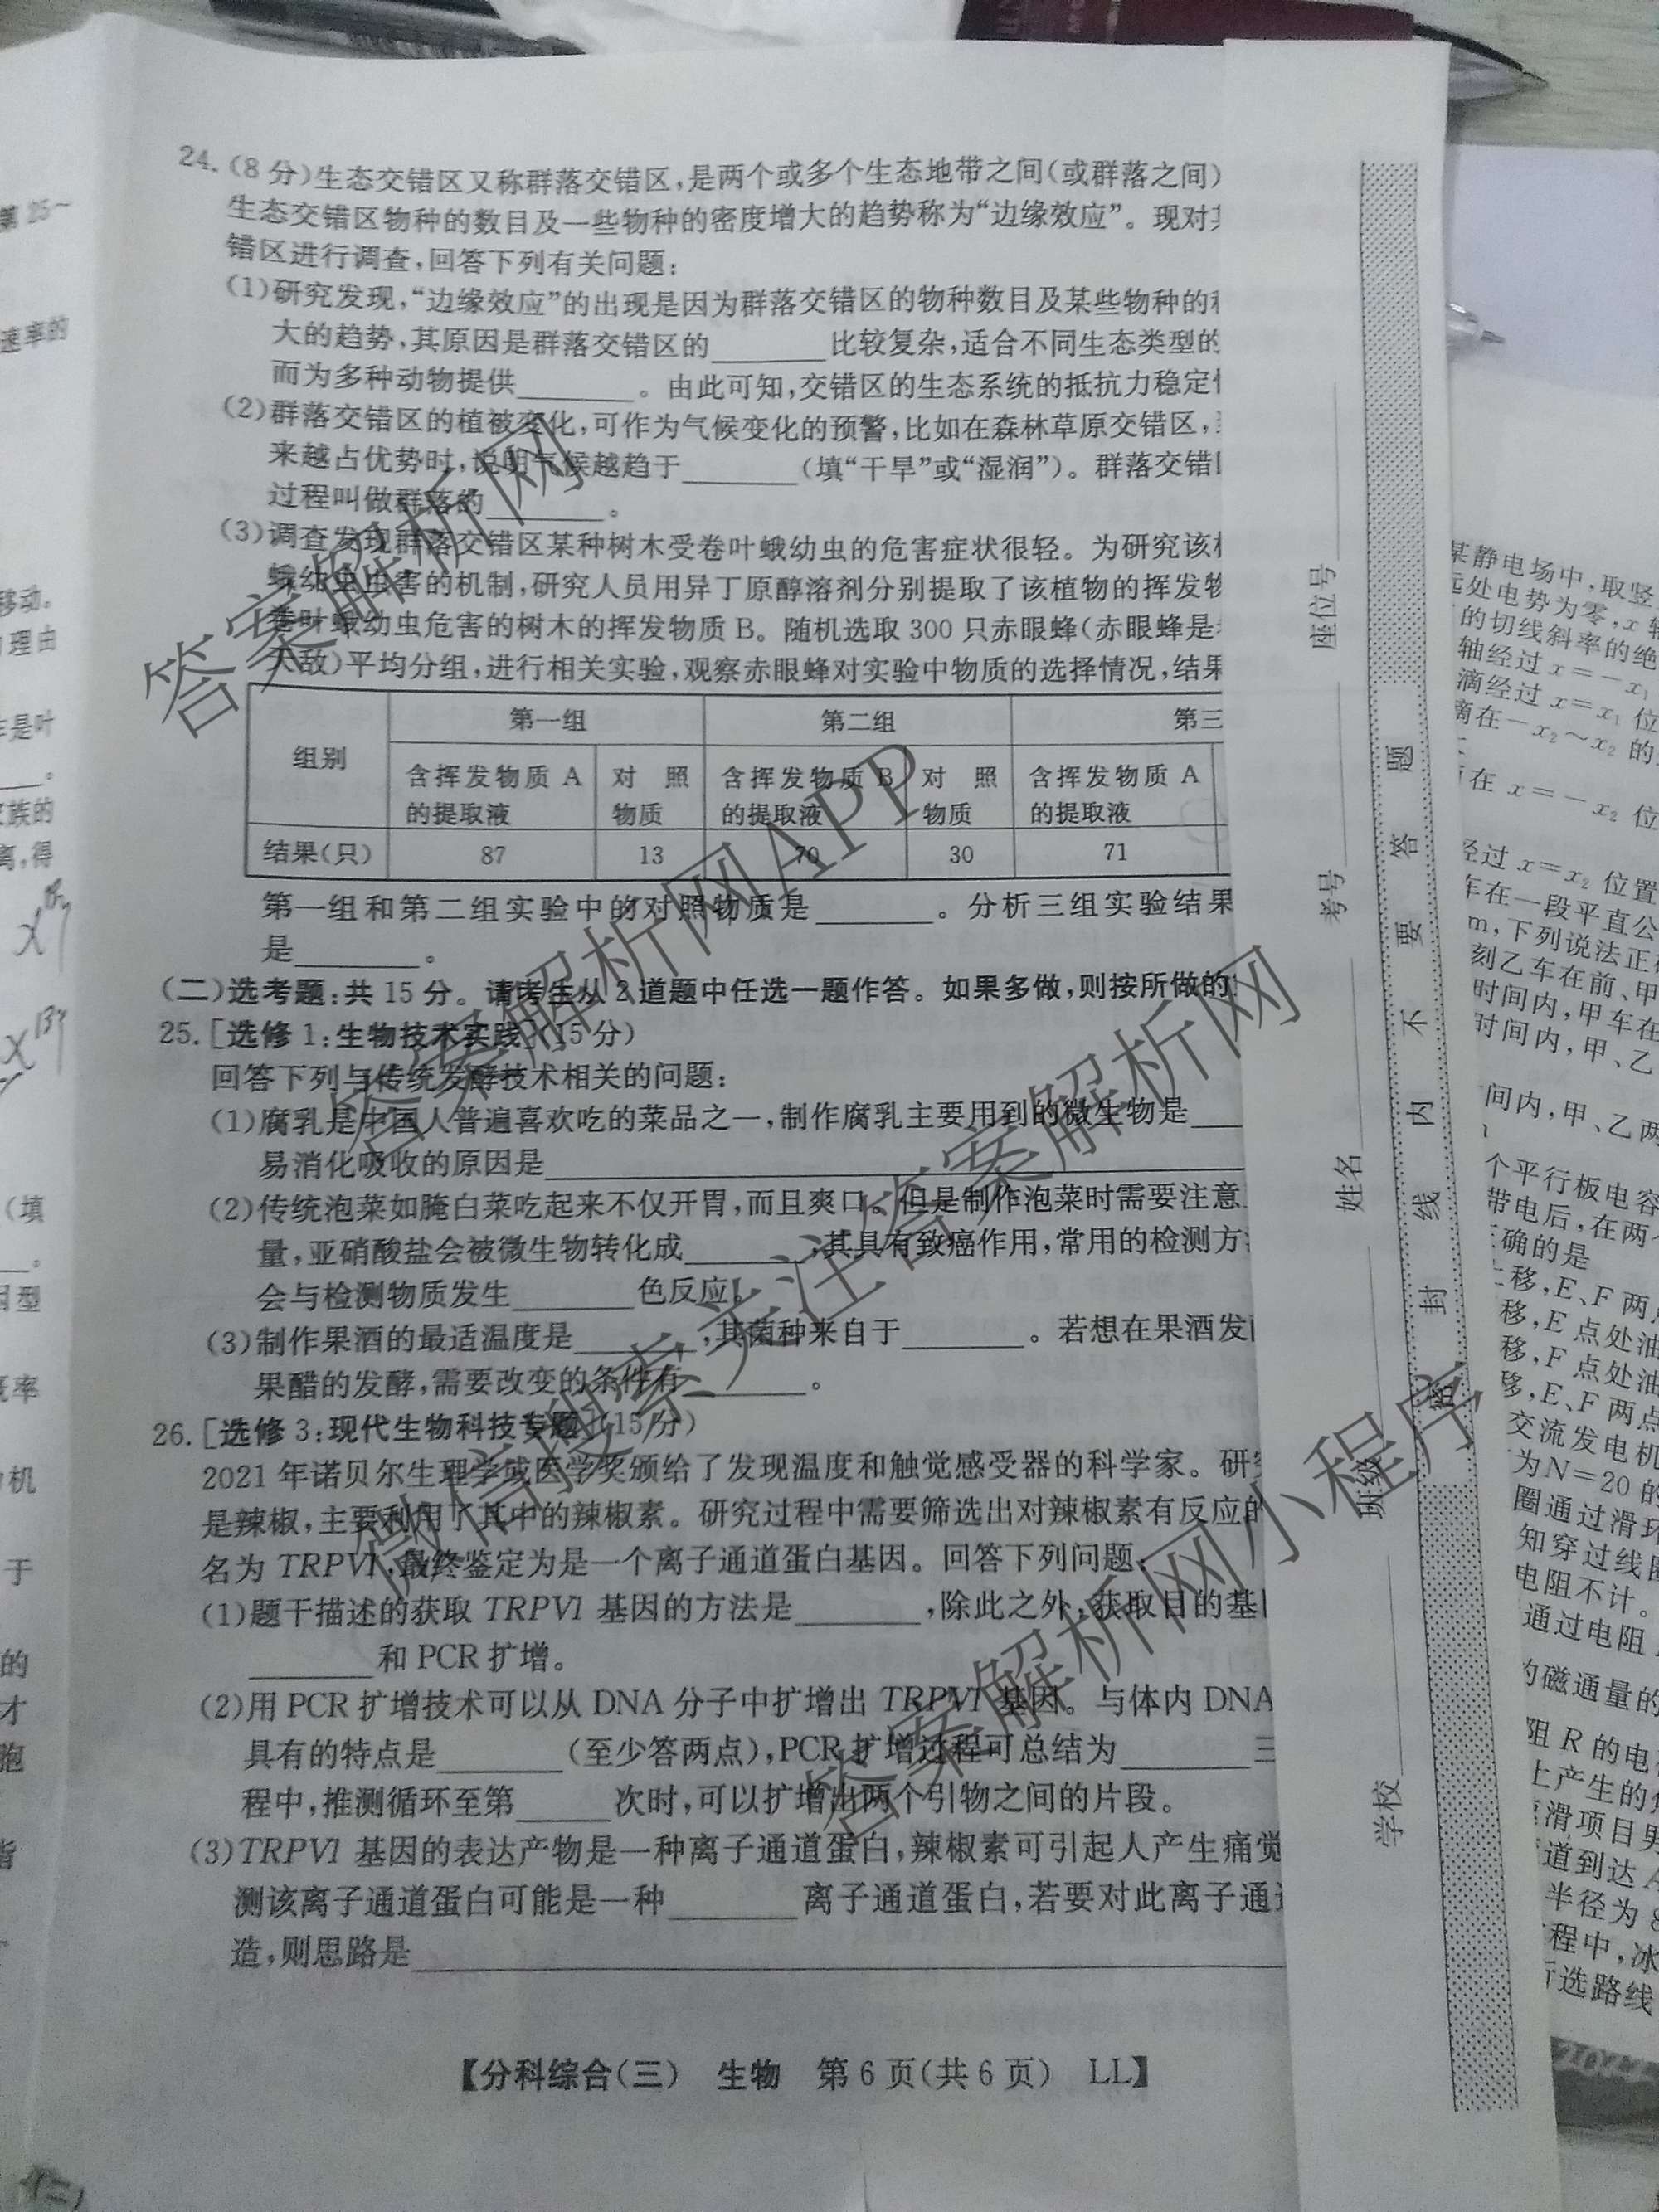 24.(8分)生态交错区又称群落交错区,是两个或多个生态地带之间(或群落之间)
生态交错区物种的数目及一些物种的密度增大的趋势称为“边缘效应”。现对
错区进行调查,回答下列有关问题:
(1)研究发现,“边缘效应”的出现是因为群落交错区的物种数目及某些物种的
大的趋势,其原因是群落交错区的________比较复杂,适合不同生态类型的
而为多种动物提供________。由此可知,交错区的生态系统的抵抗力稳定
(2)群落交错区的植被变化,可作为气候变化的预警,比如在森林草原交错区,
来越占优势时,说明气候越趋于________(填“干旱”或“湿润”)。群落交错
过程叫做群落的________。
(3)调查发现群落交错区某种树木受卷叶蛾幼虫的危害症状很轻。为研究该
蛾幼虫虫害的机制,研究人员用异丁原醇溶剂分别提取了该植物的挥发物
卷叶蛾幼虫危害的树木的挥发物质B。随机选取300只赤眼蜂(赤眼蜂是
天敌)平均分组,进行相关实验,观察赤眼蜂对实验中物质的选择情况,结果
组别 第一组 第二组 第三
含挥发物质A的提取液 对照物质 含挥发物质B的提取液 对照物质 含挥发物质A的提取液
结果(只) 87 13 70 30 71
第一组和第二组实验中的对照物质是________。分析三组实验结果
是________。
(二)选考题:共15分。请考生从2道题中任选一题作答。如果多做,则按所做的
25.[选修1:生物技术实践](15分)
回答下列与传统发酵技术相关的问题:
(1)腐乳是中国人普遍喜欢吃的菜品之一,制作腐乳主要用到的微生物是____
易消化吸收的原因是________
(2)传统泡菜如腌白菜吃起来不仅开胃,而且爽口。但是制作泡菜时需要注意
量,亚硝酸盐会被微生物转化成________,其具有致癌作用,常用的检测方
会与检测物质发生________色反应。
(3)制作果酒的最适温度是________,其菌种来自于________。若想在果酒发
果醋的发酵,需要改变的条件有________。
26.[选修3:现代生物科技专题](15分)
2021年诺贝尔生理学或医学奖颁给了发现温度和触觉感受器的科学家。研
是辣椒,主要利用了其中的辣椒素。研究过程中需要筛选出对辣椒素有反应的
名为TRPV1,最终鉴定为是一个离子通道蛋白基因。回答下列问题:
(1)题干描述的获取TRPV1基因的方法是________,除此之外,获取目的基
________和PCR扩增。
(2)用PCR扩增技术可以从DNA分子中扩增出TRPV1基因。与体内DNA
具有的特点是________(至少答两点),PCR扩增过程可总结为________三
程中,推测循环至第______次时,可以扩增出两个引物之间的片段。
(3)TRPV1基因的表达产物是一种离子通道蛋白,辣椒素可引起人产生痛觉
测该离子通道蛋白可能是一种________离子通道蛋白,若要对此离子通
造,则思路是________
【分科综合(三) 生物 第6页(共6页) LL】
答案解析网
答案解析网APP
微信搜索关注答案解析网
答案解析网小程序
座位号
考号
姓名
班级
学校
密封线内不要答题
第25～
速率的
移动。
理由
是叶
族的
离,得
(填
型
概率
机
于
的
才
胞
指
某静电场中,取竖
远处电势为零,x
的切线斜率的绝
轴经过x=-x₁
滴经过x=x₁位
滴在-x₂～x₂的
在x=-x₂位
经过x=x₂位置
车在一段平直公
m,下列说法正
刻乙车在前、甲
时间内,甲车在
时间内,甲、乙
间内,甲、乙两
个平行板电容
带电后,在两
确的是
移,E、F两
移,E点处油
移,F点处油
移,E、F两点
交流发电机
为N=20的
圈通过滑环
知穿过线圈
电阻不计。
通过电阻
的磁通量的
阻R的电
上产生的
滑项目男
道到达A
半径为8
程中,冰
所选路线